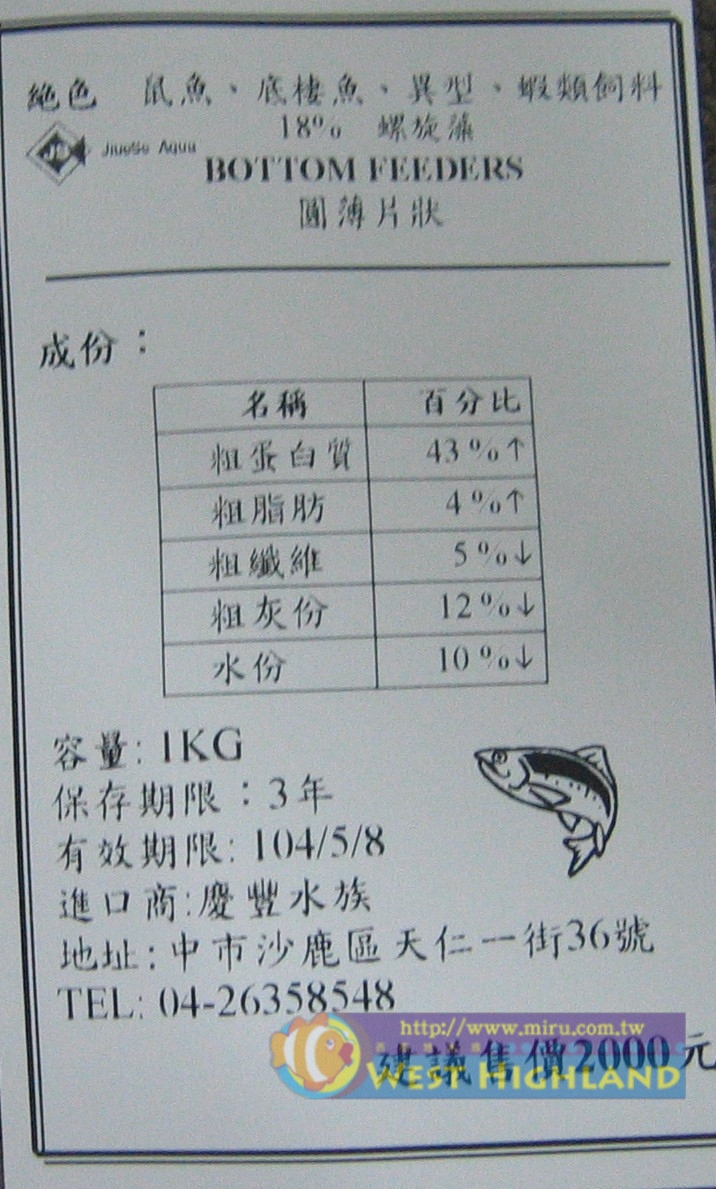 絕色 鼠魚、底棲魚、異型、蝦類飼料
18% 螺旋藻
JiueSe Aqua
BOTTOM FEEDERS
圓薄片狀
成份：
名稱 百分比
粗蛋白質 43%↑
粗脂肪 4%↑
粗纖維 5%↓
粗灰份 12%↓
水份 10%↓
容量: 1KG
保存期限：3年
有效期限: 104/5/8
進口商:慶豐水族
地址:中市沙鹿區天仁一街36號
TEL: 04-26358548
http://www.miru.com.tw
建議售價2000元
WEST HIGHLAND